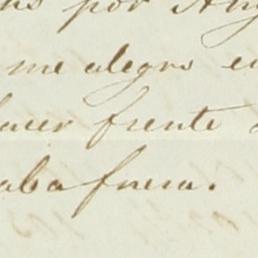 por Ang
me alegro e
hacer frente
aba fuera.